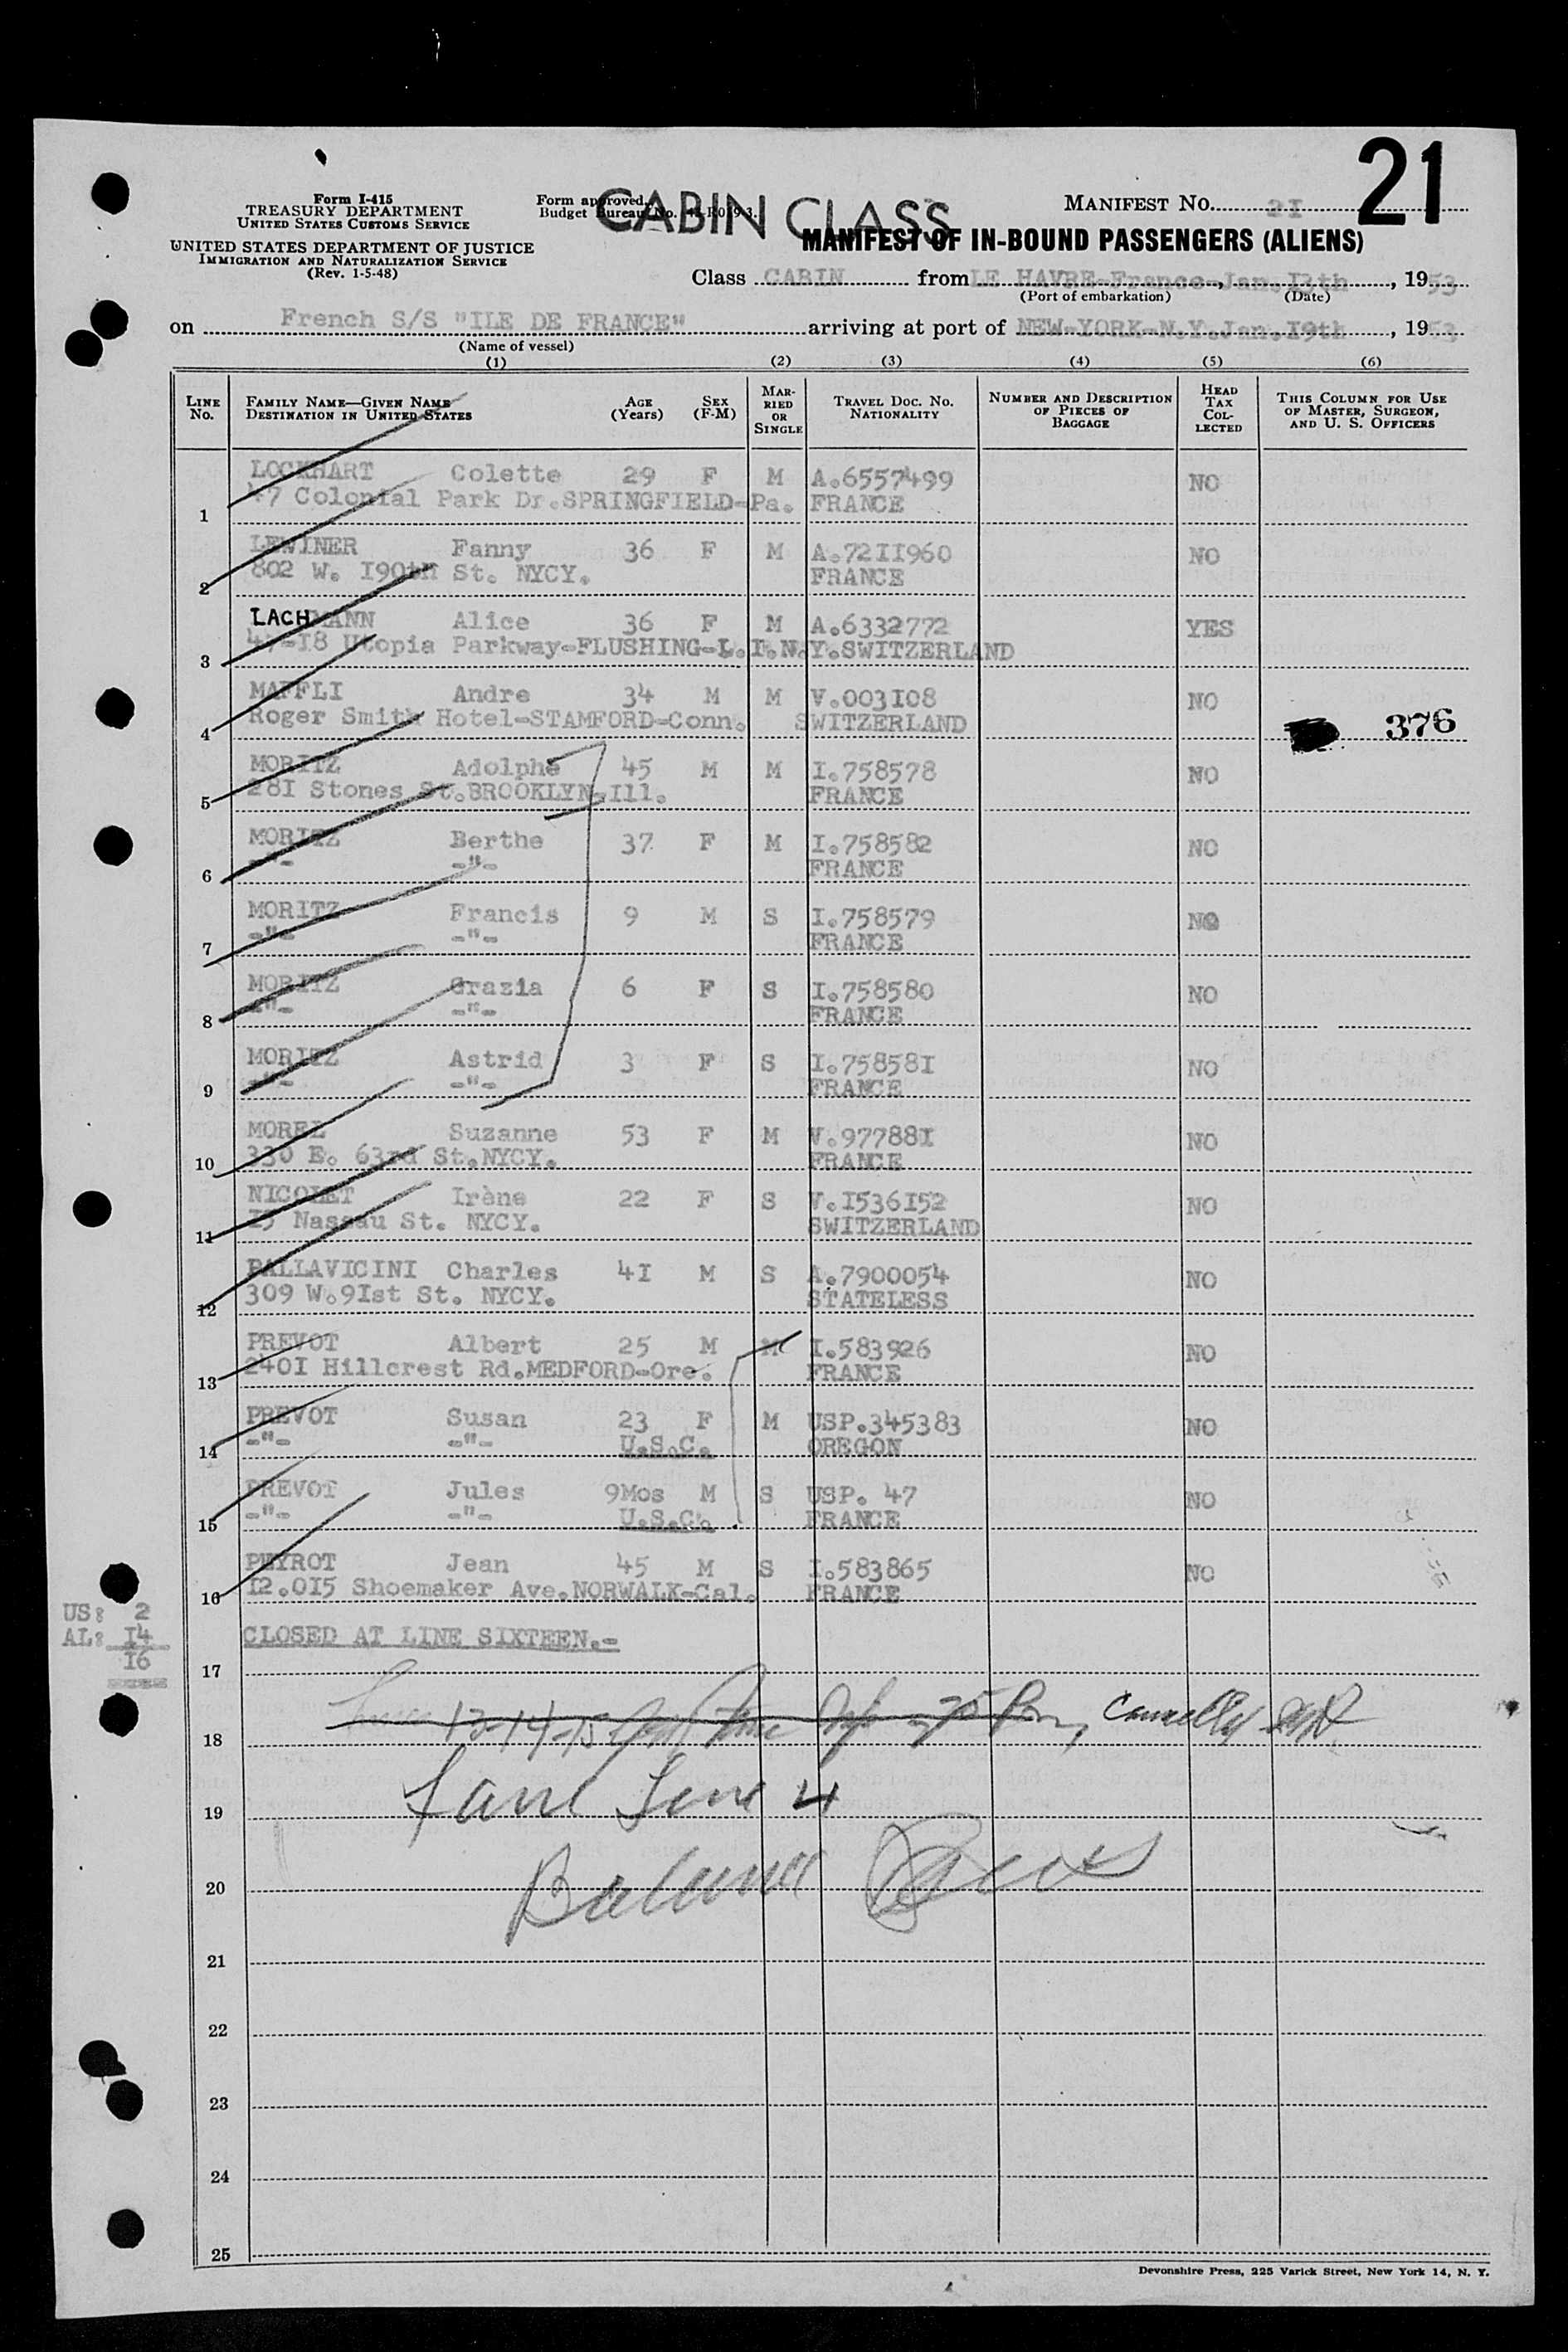 21
Form I-415
TREASURY DEPARTMENT
UNITED STATES CUSTOMS SERVICE
UNITED STATES DEPARTMENT OF JUSTICE
IMMIGRATION AND NATURALIZATION SERVICE
(Rev. 1-5-48)
Form approved.
Budget Bureau No.
CABIN CLASS
MANIFEST NO. 21
MANIFEST OF IN-BOUND PASSENGERS (ALIENS)
Class CABIN from LE HAVRE-France-Jan.13th, 1953
(Port of embarkation) (Date)
on French S/S "ILE DE FRANCE" arriving at port of NEW-YORK-N.Y.Jan.19th, 1953
(Name of vessel)
(1) (2) (3) (4) (5) (6)
LINE No. FAMILY NAME—GIVEN NAME DESTINATION IN UNITED STATES AGE (Years) SEX (F-M) MARRIED OR SINGLE TRAVEL DOC. NO. NATIONALITY NUMBER AND DESCRIPTION OF PIECES OF BAGGAGE HEAD TAX COLLECTED THIS COLUMN FOR USE OF MASTER, SURGEON, AND U. S. OFFICERS
LOCKHART Colette 29 F M A.6557499 NO
1 47 Colonial Park Dr.SPRINGFIELD-Pa. FRANCE
LEWINER Fanny 36 F M A.7211960 NO
2 802 W. 190th St. NYCY. FRANCE
LACHMANN Alice 36 F M A.6332772 YES
3 47-18 Utopia Parkway-FLUSHING-L.I.N.Y. SWITZERLAND
MAFFLI Andre 34 M M V.003108 NO
4 Roger Smith Hotel-STAMFORD-Conn. SWITZERLAND 376
MORITZ Adolphe 45 M M I.758578 NO
5 281 Stones St.BROOKLYN,Ill. FRANCE
MORITZ Berthe 37 F M I.758582 NO
6 -"- -"- FRANCE
MORITZ Francis 9 M S I.758579 NO
7 -"- -"- FRANCE
MORITZ Grazia 6 F S I.758580 NO
8 -"- -"- FRANCE
MORITZ Astrid 3 F S I.758581 NO
9 -"- -"- FRANCE
MOREL Suzanne 53 F M V.977881 NO
10 330 E. 63rd St.NYCY. FRANCE
NICOLET Irène 22 F S V.1536152 NO
11 15 Nassau St. NYCY. SWITZERLAND
PALLAVICINI Charles 41 M S A.7900054 NO
12 309 W.91st St. NYCY. STATELESS
PREVOT Albert 25 M M I.583926 NO
13 2401 Hillcrest Rd.MEDFORD-Ore. FRANCE
PREVOT Susan 23 F M USP.345383 NO
14 -"- -"- U.S.C. OREGON
PREVOT Jules 9Mos M S USP. 47 NO
15 -"- -"- U.S.C. FRANCE
PEYROT Jean 45 M S I.583865 NO
16 12.015 Shoemaker Ave.NORWALK-Cal. FRANCE
US: 2
AL: 14
16
CLOSED AT LINE SIXTEEN.-
17
18
19 Line 4
20 Balance
21
22
23
24
25
Devonshire Press, 225 Varick Street, New York 14, N. Y.